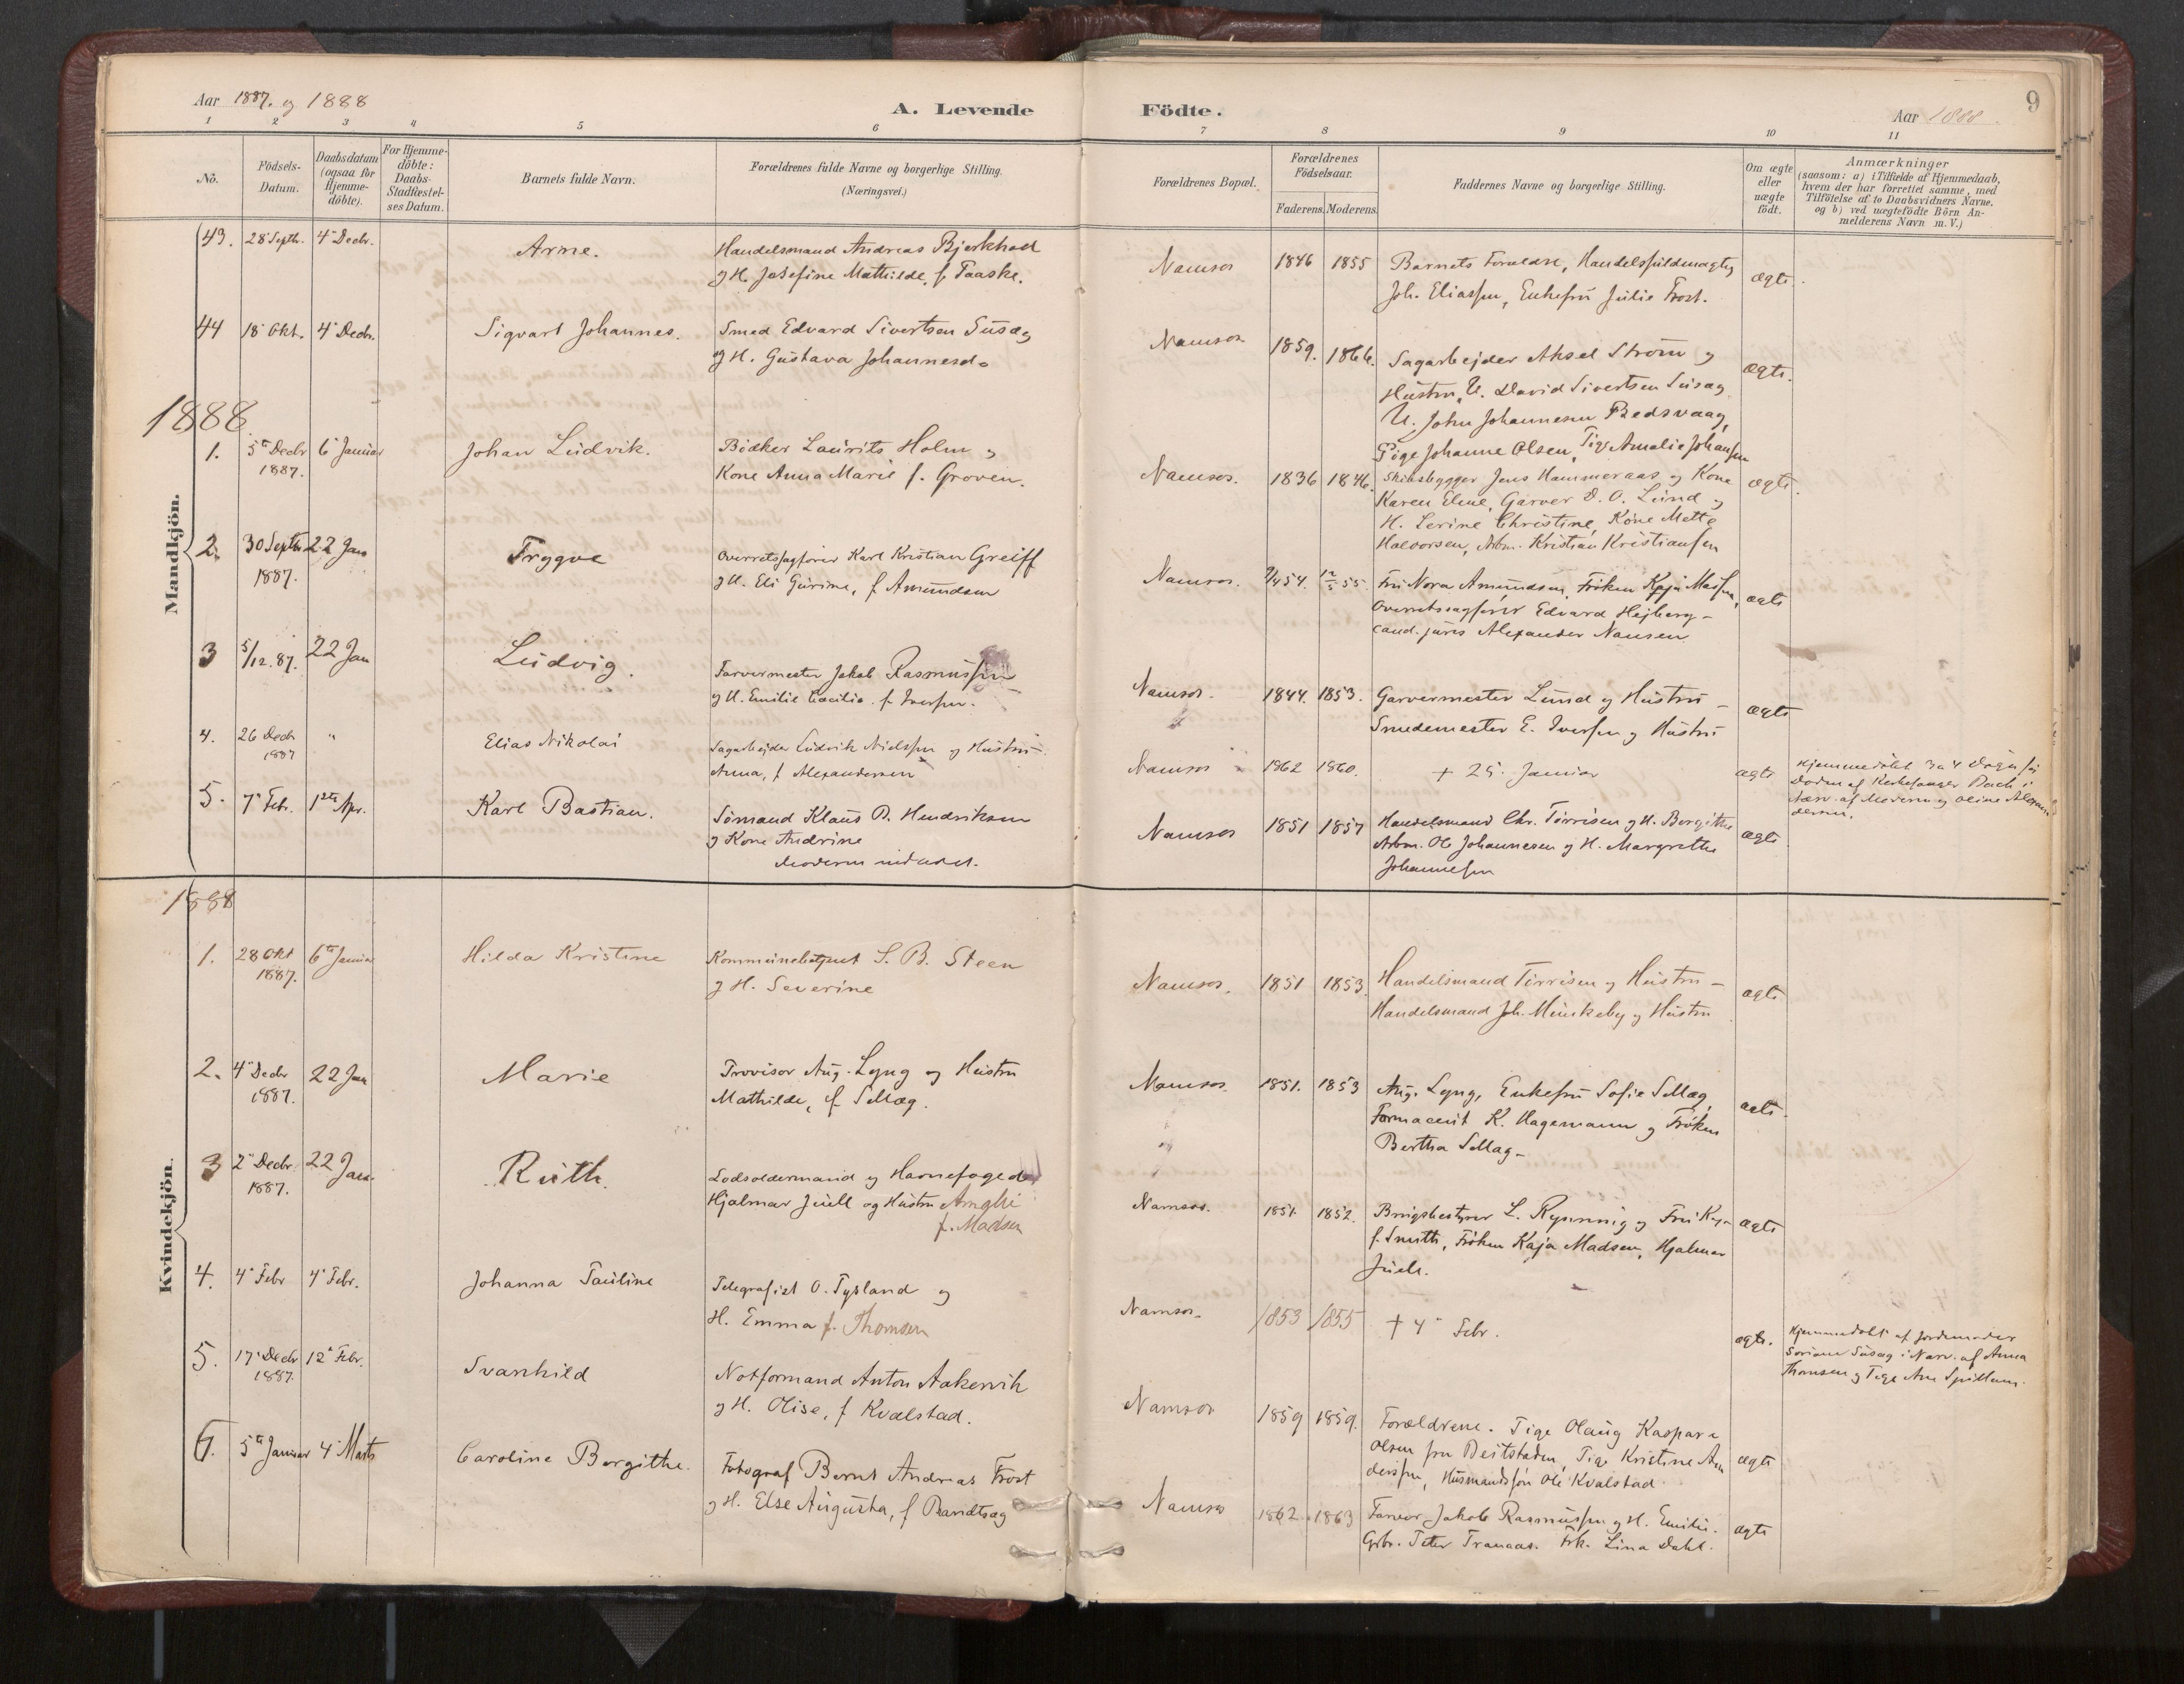 Aar 1887. og 1888
A. Levende
Födte.
Aar 1888.
9
1 2 3 4 5 6 7 8 9 10 11
No.
Födsels-
Datum.
Daabsdatum
(ogsaa for
Hjemme-
döbte).
For Hjemme-
döbte:
Daabs-
Stadfæstel-
ses Datum.
Barnets fulde Navn.
Forældrenes fulde Navne og borgerlige Stilling.
(Næringsvei.)
Forældrenes Bopæl.
Forældrenes
Födselsaar.
Faderens. Moderens.
Faddernes Navne og borgerlige Stilling.
Om ægte
eller
uægte
födt.
Anmærkninger
(saasom: a) i Tilfælde af Hjemmedaab,
hvem der har forrettet samme, med
Tilföielse af to Daabsvidners Navne,
og b) ved uægtefödte Börn An-
melderens Navn m. V.)
Mandkjön.
43. 28 Septbr. 4 Decbr.
Arne.
Handelsmand Andreas
og H. Josefine Mathilde, f. Faaske.
Namsos 1846 1855
Barnets Forældre, Handelsfuldmægtig
Joh. Eliassen, Enkefru Julie Frost.
ægte.
44 18 Okt. 4 Decbr.
Sigvart Johannes.
Smed Edvard Sivertsen Susæg
og H. Gustava Johannesd.
Namsos 1859. 1866.
Sagarbejder Aksel Ström og
Hustru, U. David Sivertsen Susæg
U. John Johannesen Bredsvaag,
Pige Johanne Olsen, Pige Amalie Johansen
ægte.
1888
1. 5te Decbr 1887. 6 Januar
Johan Ludvik.
Bödker Laurits Holm og
Kone Anna Marie f. Groven.
Namsos. 1836 1846.
Skibsbygger Jens Hammeraas og Kone
Karen Eline, Garver D. O. Lund og
H. Serine Christine, Kone Mette
Halvorsen, Arbm. Kristian Kristiansen
ægte.
2. 30 Septbr 1887. 22 Jan
Trygve
Overretssagförer Karl Kristian Greiff
og H. Eli Gurine, f. Amundsen
Namsos. 54. 12/5 55.
Fru Nora Amundsen, Fröken Kaja
Overretssagförer Edvard Hejberg -
cand. juris Alexander Nansen
ægte
3 5/12. 87. 22 Jan
Ludvig.
Farvermester Jakob Rasmussen
og H. Emilie Cæcilia f. Iversen.
Namsos. 1844. 1853.
Garvermester Lund og Hustru -
Smedemester E. Iversen og Hustru
ægte
4. 26 Decbr 1887 "
Elias Nikolai
Sagarbejder Ludvik Nielssen og Hustru -
Anna, f. Alexandersen
Namsos 1862 1860.
+ 25. Januar
ægte
Hjemmedöbt 3 a 4 Dage för
Döden af Kirkesanger Bach i
Nærv. af Moderen og Oline Alexan
dersen.
5. 7 Feb. 1ste Apr.
Karl Bastian.
Sömand Klaus B. Hendriksen
og Kone Andrine
Moderen indledet.
Namsos 1851 1857
Handelsmand Chr. Törrisen og H. Bergithe
Arbm. Ole Johannesen og H. Margrethe
Johannesen
ægte
Kvindekjön.
1888
1. 28 Okt 1887. 6te Januar
Hilda Kristine
S. B. Steen
og H. Severine
Namsos. 1851 1853.
Handelsmand Törrisen og Hustru -
Handelsmand Joh. Menkeby og Hustru
ægte
2. 4 Decbr 1887. 22 Jan
Marie
Provisor Aug. Lyng og Hustru
Mathilde, f. Sellæg.
Namsos. 1851. 1853
Aug. Lyng, Enkefru Sofie Sellæg,
Farmaceut K. Hagemann og Fröken
Bertha Sellæg -
ægte.
3 2 Decbr. 1887. 22 Jan.
Ruth.
Lodsoldermand og Havnefoged
Hjalmar Juell og Hustru
f. Madsen
Namsos. 1851. 1852.
Brugsbestyrer L. Rynning og Fru Kaja
f. Smith, Fröken Kaja Madsen, Hjalmar
Juell.
ægte
4. 4 Febr 4 Febr.
Johanna Pauline
Telegrafist O. Tysland og
H. Emma f. Thomsen
Namsos. 1853 1855
+ 4 Febr.
ægte.
Hjemmedöbt af Jordemoder
Susæg i Nærv. af Anna
Thomsen og Pige Ane Spillum.
5. 17 Decbr 1887. 12 Febr.
Svanhild
Notformand Anton Aakervik
og H. Olise, f. Kvalstad.
Namsos 1859 1859.
Forældrene. Pige Olaug Kaspara
Olsen fra Beitstaden, Pige Kristine An
derssen, Husmandssön Ole Kvalstad
ægte
6. 5te Januar 4 Marts
Caroline Bergithe.
Fotograf Bernt Andreas Frost
og H. Else Augusta, f. Brandtsæg
Namsos 1862. 1863
Farver Jakob Rasmussen og H. Emilie.
Grbr. Peter Tranaas. Frk. Lina Dahl.
ægte